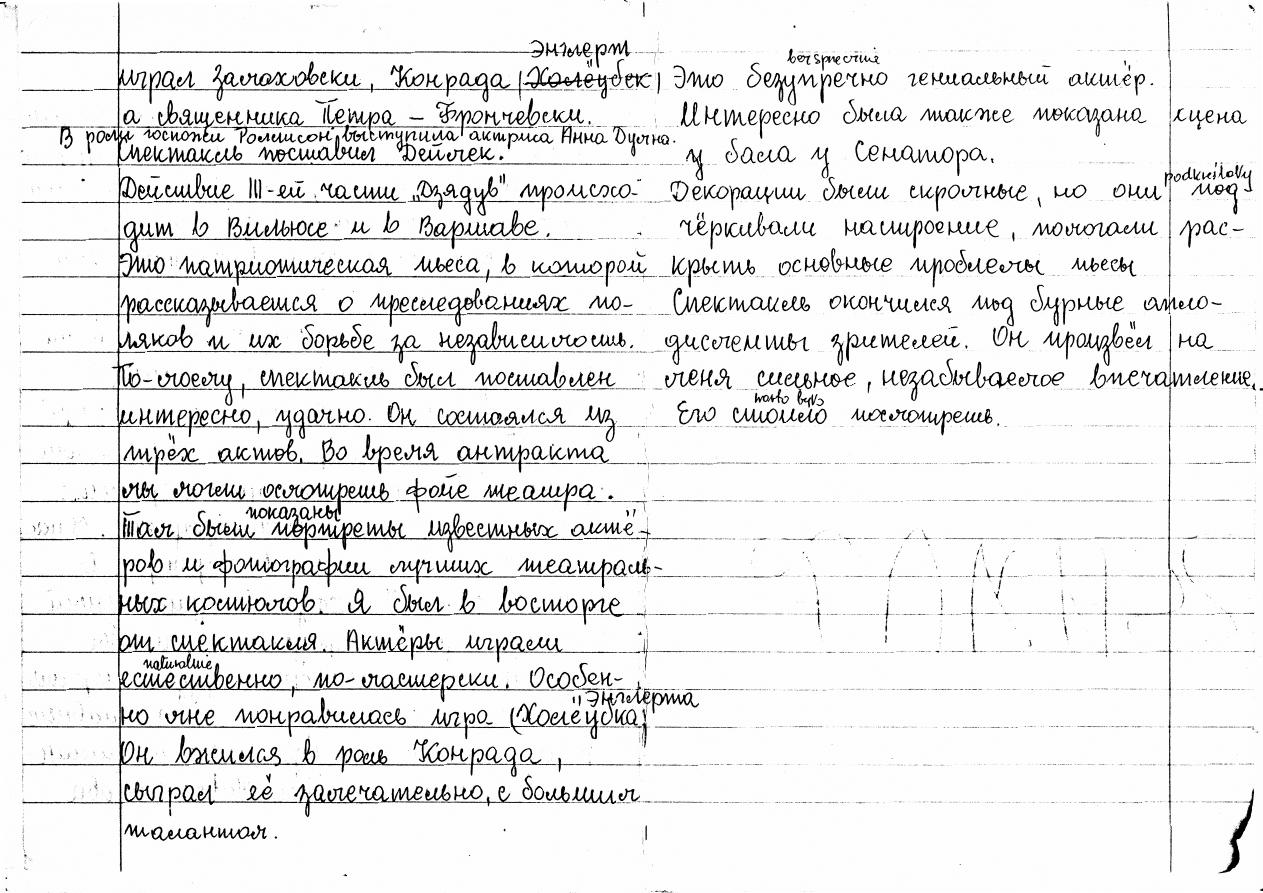 Энглерт
играл Замаховски, Конрада (Холёубек)
а священника Петра – Брончевски.
В роли госпожи Роллисон выступила актриса Анна Дымна.
Спектакль поставил Деймек.
Действие III-ей части „Дзядув" происхо-
дит в Вильюсе и в Варшаве.
Это патриотическая пьеса, в которой
рассказывается о преследованиях по-
ляков и их борьбе за независимость.
По-моему, спектакль был поставлен
интересно, удачно. Он состоялся из
трёх актов. Во время антракта
мы могли осмотреть фойе театра.
показаны
Там были портреты известных актё-
ров и фотографии лучших театраль-
ных костюмов. Я был в восторге
от спектакля. Актёры играли
naturalnie
естественно, по-мастерски. Особен-
Энглерта
но мне понравилась игра (Холёубка)
Он вжился в роль Конрада,
сыграл её замечательно, с большим
талантом.
bezsprzecznie
Это безупречно гениальный актёр.
Интересно была также показана сцена
у бала у Сенатора.
podkreślały
Декорации были скромные, но они под
чёркивали настроение, помогали рас-
крыть основные проблемы пьесы
Спектакль окончился под бурные апло-
дисменты зрителей. Он произвёл на
меня сильное, незабываемое впечатление.
warto było
Его стоило посмотреть.